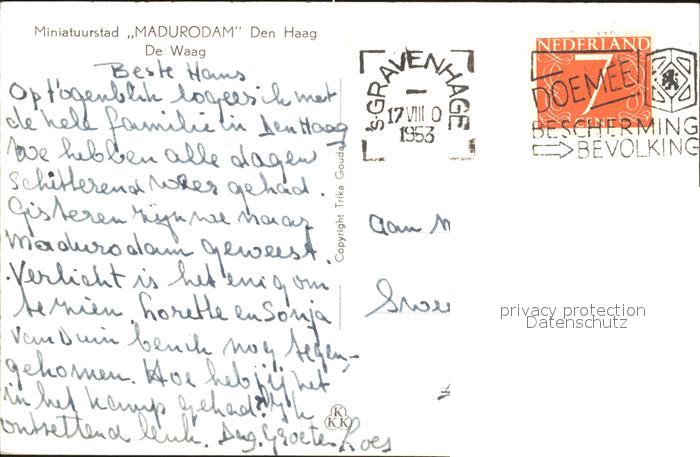 Miniatuurstad „MADURODAM" Den Haag
De Waag
Beste Hans
Op t'ogenblik logeer ik met
de hele familie in Den Haag
We hebben alle dagen
schitterend weer gehad.
Gisteren zijn we naar
Madurodam geweest.
Verlicht is het enig om
te zien. Lorette en Sonja
van Duin ben ik nog tegen-
gekomen. Hoe heb jij het
in het kamp gehad? Ik
ontzettend leuk. Dag. Groeten Loes
Copyright Trika Gouda
KKK
'S-GRAVENHAGE
17 VIII 0
1953
NEDERLAND
7
CENT
DOE MEE!
BESCHERMING
BEVOLKING
Aan M
privacy protection
Datenschutz